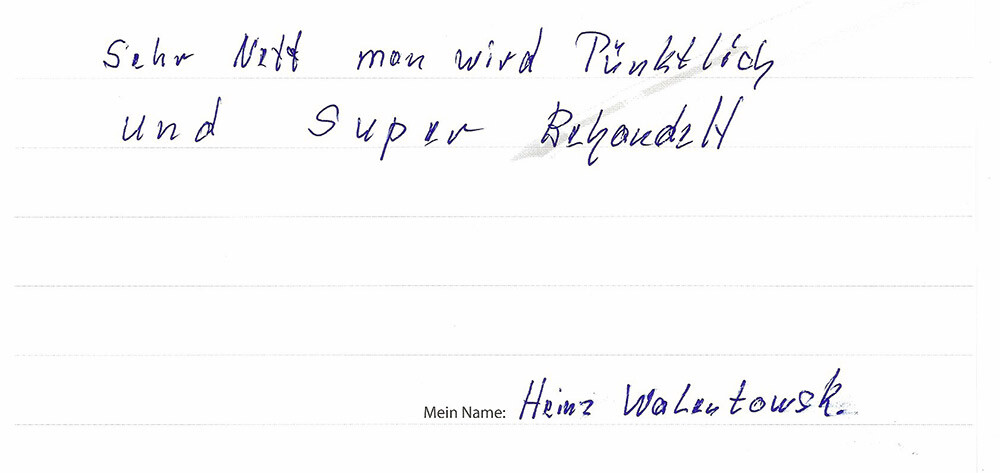 Sehr Nett man wird Pünktlich
und Super Behandelt
Mein Name: Heinz Walentowsk.